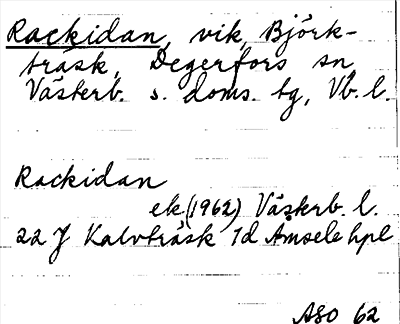 Rackidan, vik, Björk-
träsk, Degerfors sn,
Västerb. s. doms. tg, Vb. l.
Rackidan
ek (1962) Västerb. l.
22 J Kalvträsk 1d Amsele hpl
ASO 62